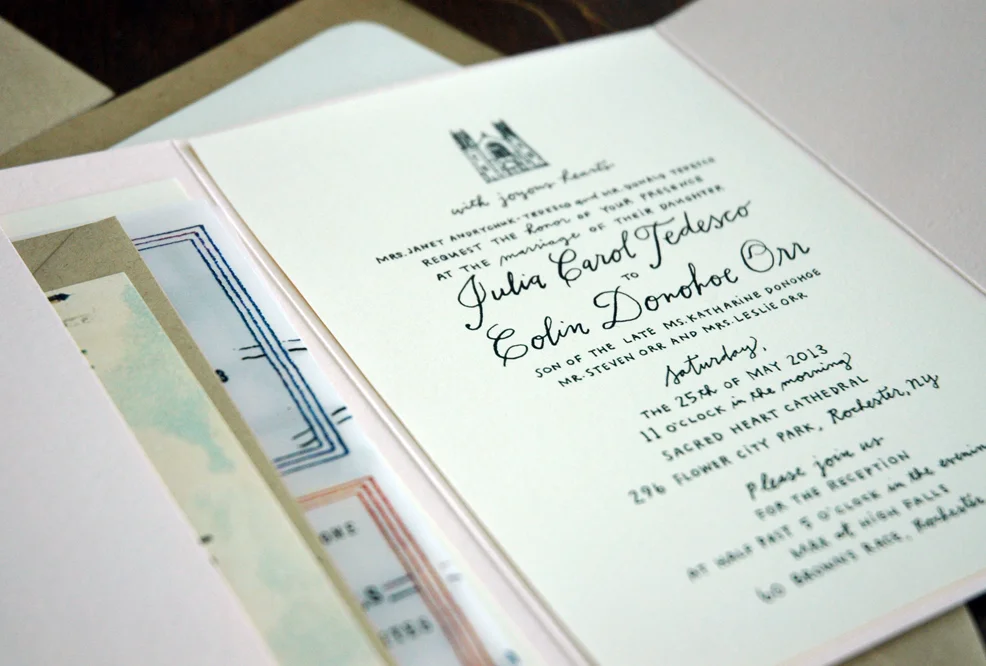 with joyous hearts
MRS. JANET ANDRYCHUK-TEDESCO and MR. DONALD TEDESCO
REQUEST THE honor OF YOUR PRESENCE
AT THE marriage OF THEIR DAUGHTER
Julia Carol Tedesco
TO
Colin Donohoe Orr
SON OF THE LATE MS. KATHARINE DONOHOE
MR. STEVEN ORR AND MRS. LESLIE ORR
Saturday,
THE 25th OF MAY 2013
11 O'CLOCK in the morning
SACRED HEART CATHEDRAL
296 FLOWER CITY PARK, Rochester, NY
Please join us
FOR THE RECEPTION
AT HALF PAST 5 O'CLOCK in the evenin
at HIGH FALLS
60 BROWNS RACE, Rochester